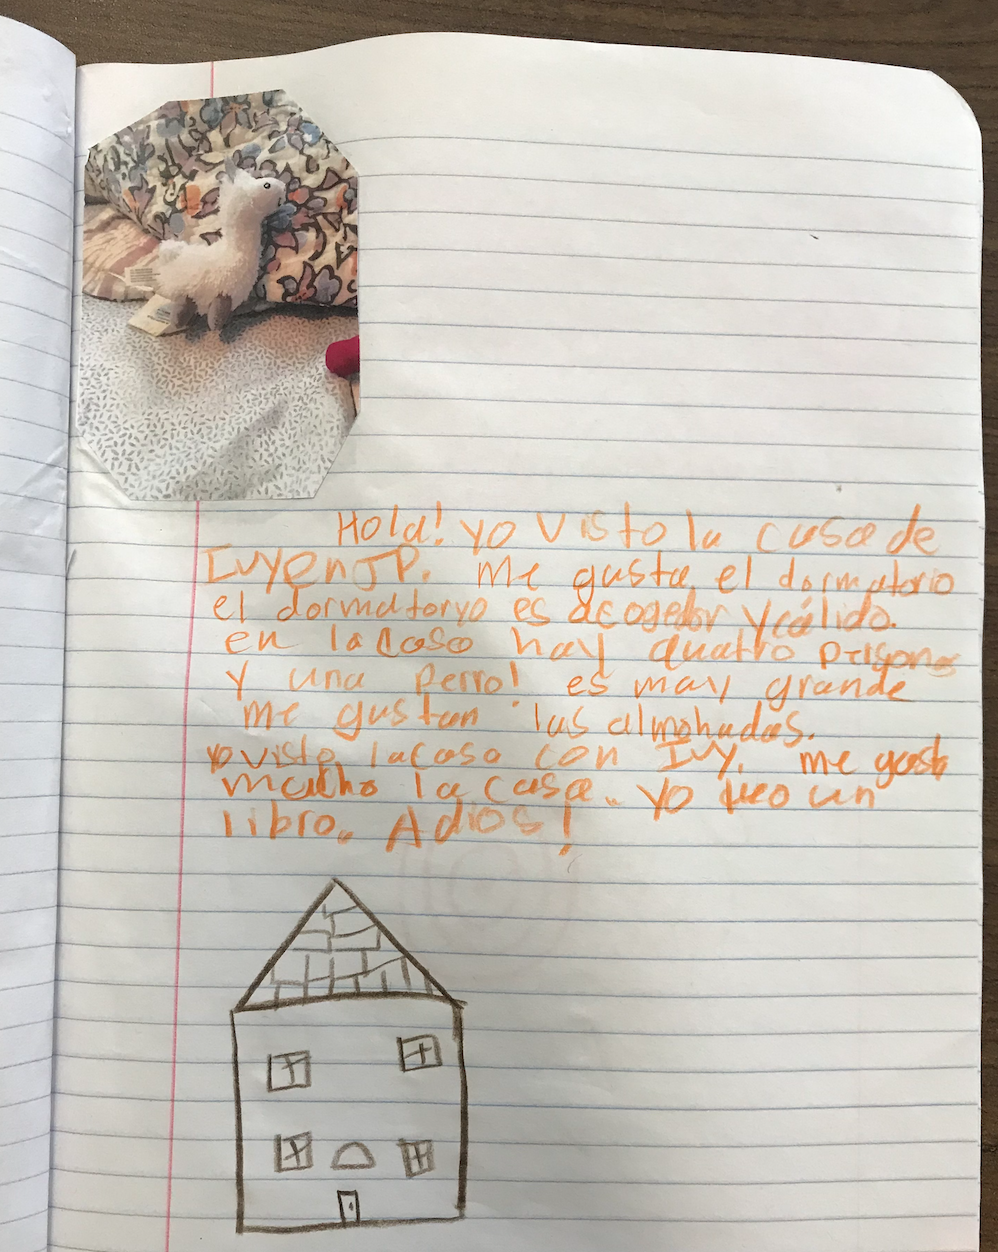 Hola! yo visto la casa de
Ivy en JP. Me gusta el dormatorio
el dormatoryo es acogedor y cálido.
en la casa hay quatro prisones
y una perro! es may grande
me gustan las almohadas.
yo visto la casa con Ivy. me gusta
mucho la casa. Yo leo un
libro. Adios!